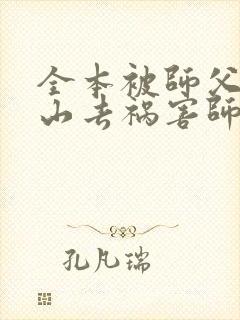 全本被師父
山去禍害師
孔凡瑞